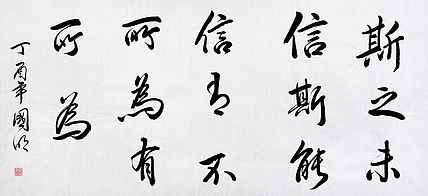 斯之未
信斯能
信有不
所為有
所為
丁酉年國